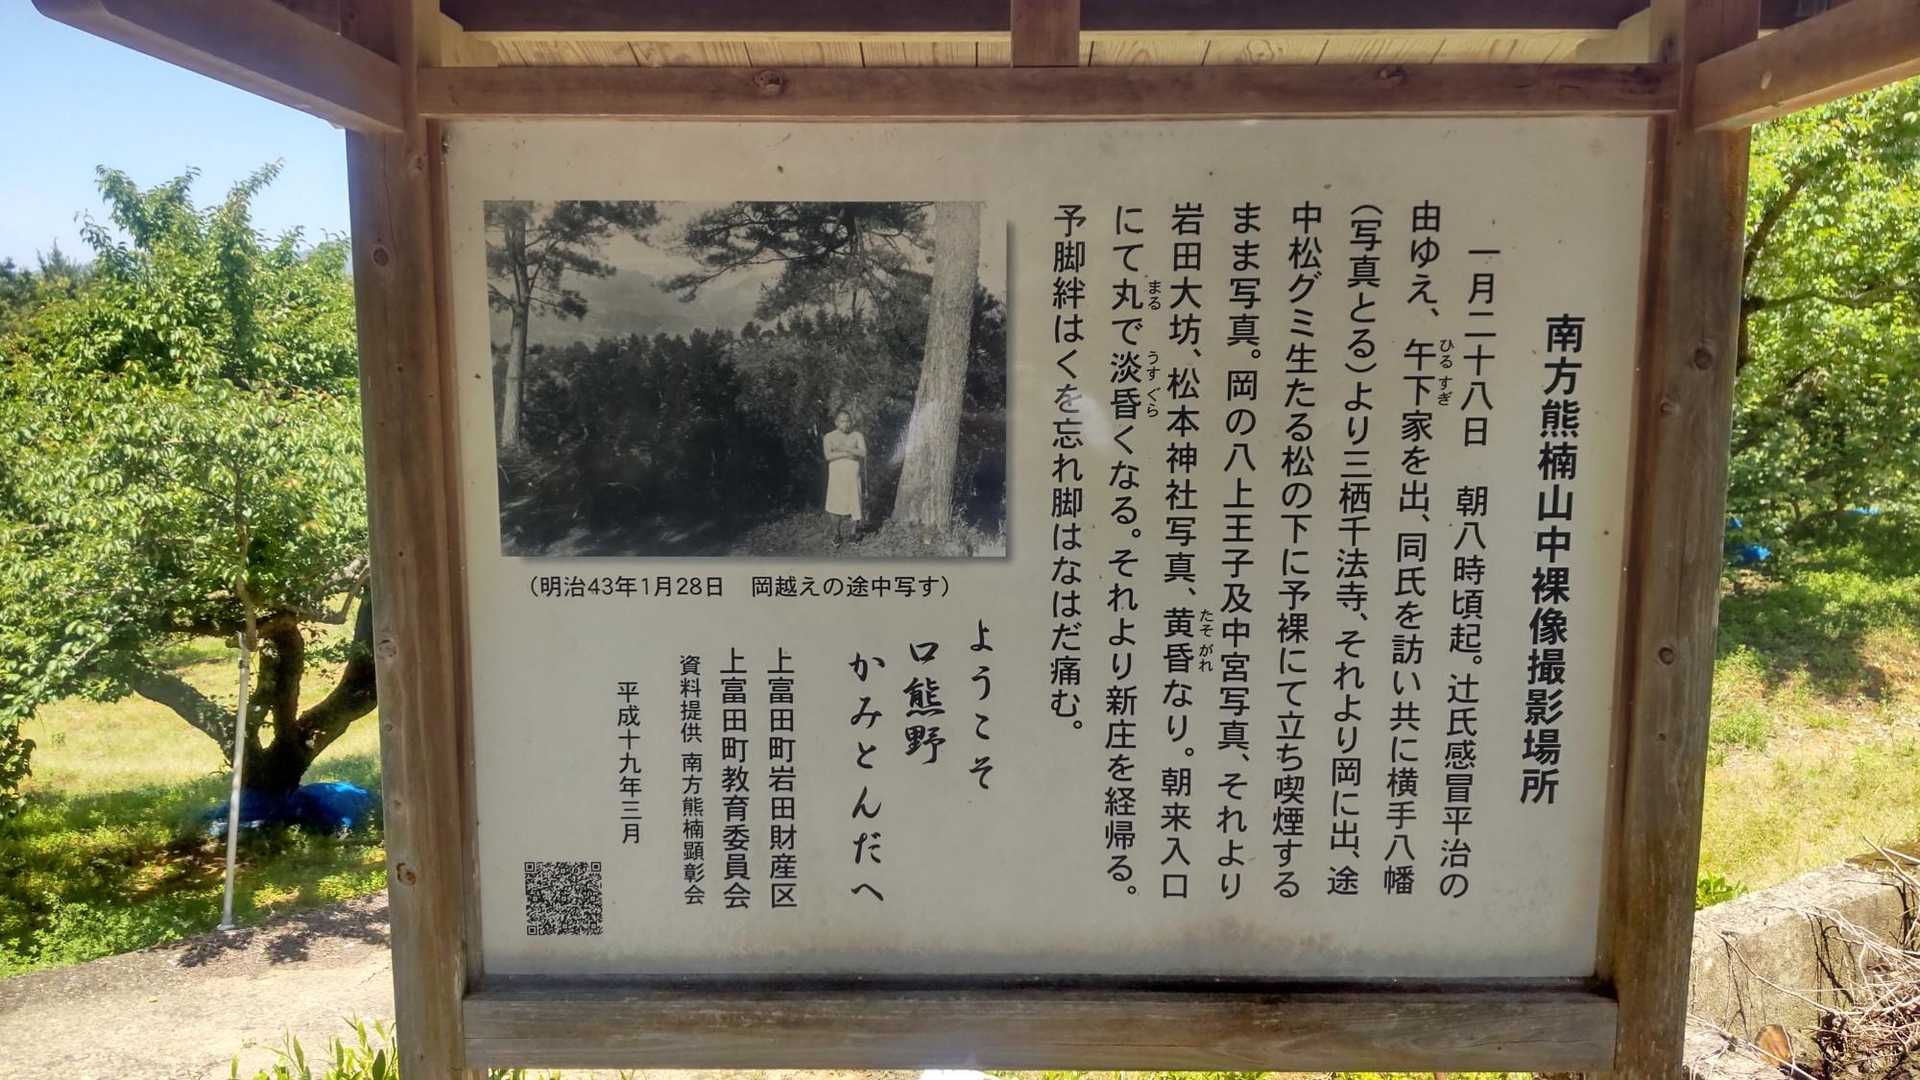 南方熊楠山中裸像撮影場所
一月二十八日　朝八時頃起。辻氏感冒平治の
由ゆえ、午下家を出、同氏を訪い共に横手八幡
ひるすぎ
（写真とる）より三栖千法寺、それより岡に出、途
中松グミ生たる松の下に予裸にて立ち喫煙する
まま写真。岡の八上王子及中宮写真、それより
岩田大坊、松本神社写真、黄昏なり。朝来入口
たそがれ
にて丸で淡昏くなる。それより新庄を経帰る。
まる
うすぐら
予脚絆はくを忘れ脚はなはだ痛む。
（明治43年1月28日　岡越えの途中写す）
ようこそ
口熊野
かみとんだへ
上富田町岩田財産区
上富田町教育委員会
資料提供 南方熊楠顕彰会
平成十九年三月